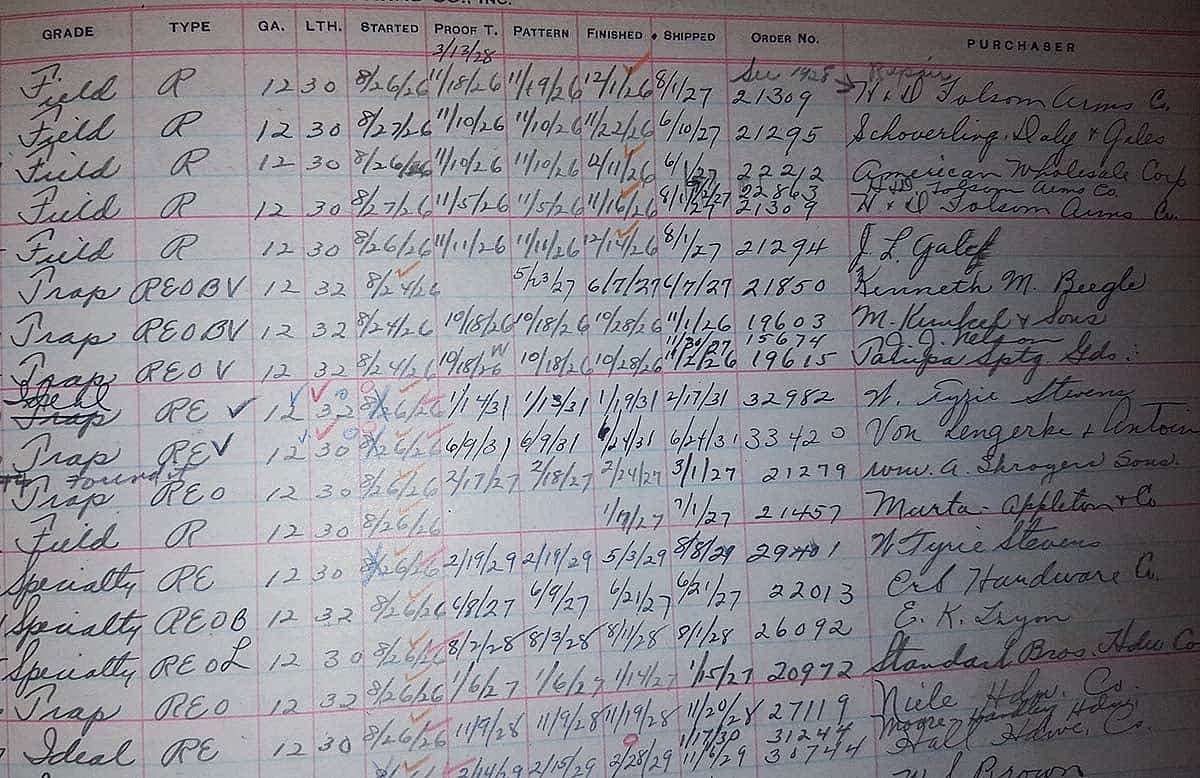 CO., INC.
GRADE TYPE GA. LTH. STARTED PROOF T. PATTERN FINISHED SHIPPED ORDER No. PURCHASER
3/13/28 See 1428 Repair
Field R 12 30 8/26/26 11/18/26 11/19/26 12/1/26 8/1/27 21309 H & D Folsom Arms Co.
Field R 12 30 8/27/26 11/10/26 11/10/26 11/22/26 6/10/27 21295 Schoverling, Daly & Gales
Field R 12 30 8/26/26 11/10/26 11/10/26 2/11/26 6/1/27 22212 American Wholesale Corp
22863 H & D Folsom Arms Co.
Field R 12 30 8/27/26 11/5/26 11/5/26 11/16/26 8/1/27 21309 H & D Folsom Arms Co.
Field R 12 30 8/26/26 11/11/26 11/11/26 12/14/26 8/1/27 21294 J. L. Galef
Trap REOBV 12 32 8/24/26 5/23/27 6/7/27 6/7/27 21850 Kenneth M. Beegle
Trap REOBV 12 32 8/24/26 10/18/26 10/18/26 10/28/26 11/1/26 19603 M. & Sons
11/30/27 15674 J. J. Nelson
Trap REOV 12 32 8/24/26 10/18/26 10/18/26 10/28/26 19615 Sptg. Gds.
Trap RE 12 32 8/26/26 1/14/31 1/13/31 1/19/31 2/17/31 32982 N. Tyrie Stevens
Trap REV 12 30 8/26/26 6/9/31 6/9/31 6/24/31 6/24/31 33420 Von Lengerke & Antoin
found it
Trap REO 12 30 8/26/26 2/17/27 2/18/27 2/24/27 3/1/27 21279 Wm. A. Shroyers Sons.
Field R 12 30 8/26/26 1/17/27 7/1/27 21457 Murta-Appleton & Co
Specialty RE 12 30 8/26/26 2/19/29 2/19/29 5/3/29 8/8/29 N Tyrie Stevens
Specialty REOB 12 32 8/26/26 6/8/27 6/9/27 6/21/27 6/21/27 22013 Erb Hardware Co.
Specialty REOL 12 30 8/26/26 8/2/28 8/3/28 8/11/28 9/1/28 26092 E. K.
Trap REO 12 32 8/26/26 1/6/27 1/6/27 1/14/27 1/15/27 20972 Standard Bros. Hdw Co
Ideal RE 12 30 8/26/26 11/9/28 11/9/28 11/19/28 11/20/28 27119 Co.
1/17/30 31244 Moore Handley Hdw.
2/14/29 2/15/29 2/28/29 11/6/29 30744 Hall Hdwe. Co.
Brown